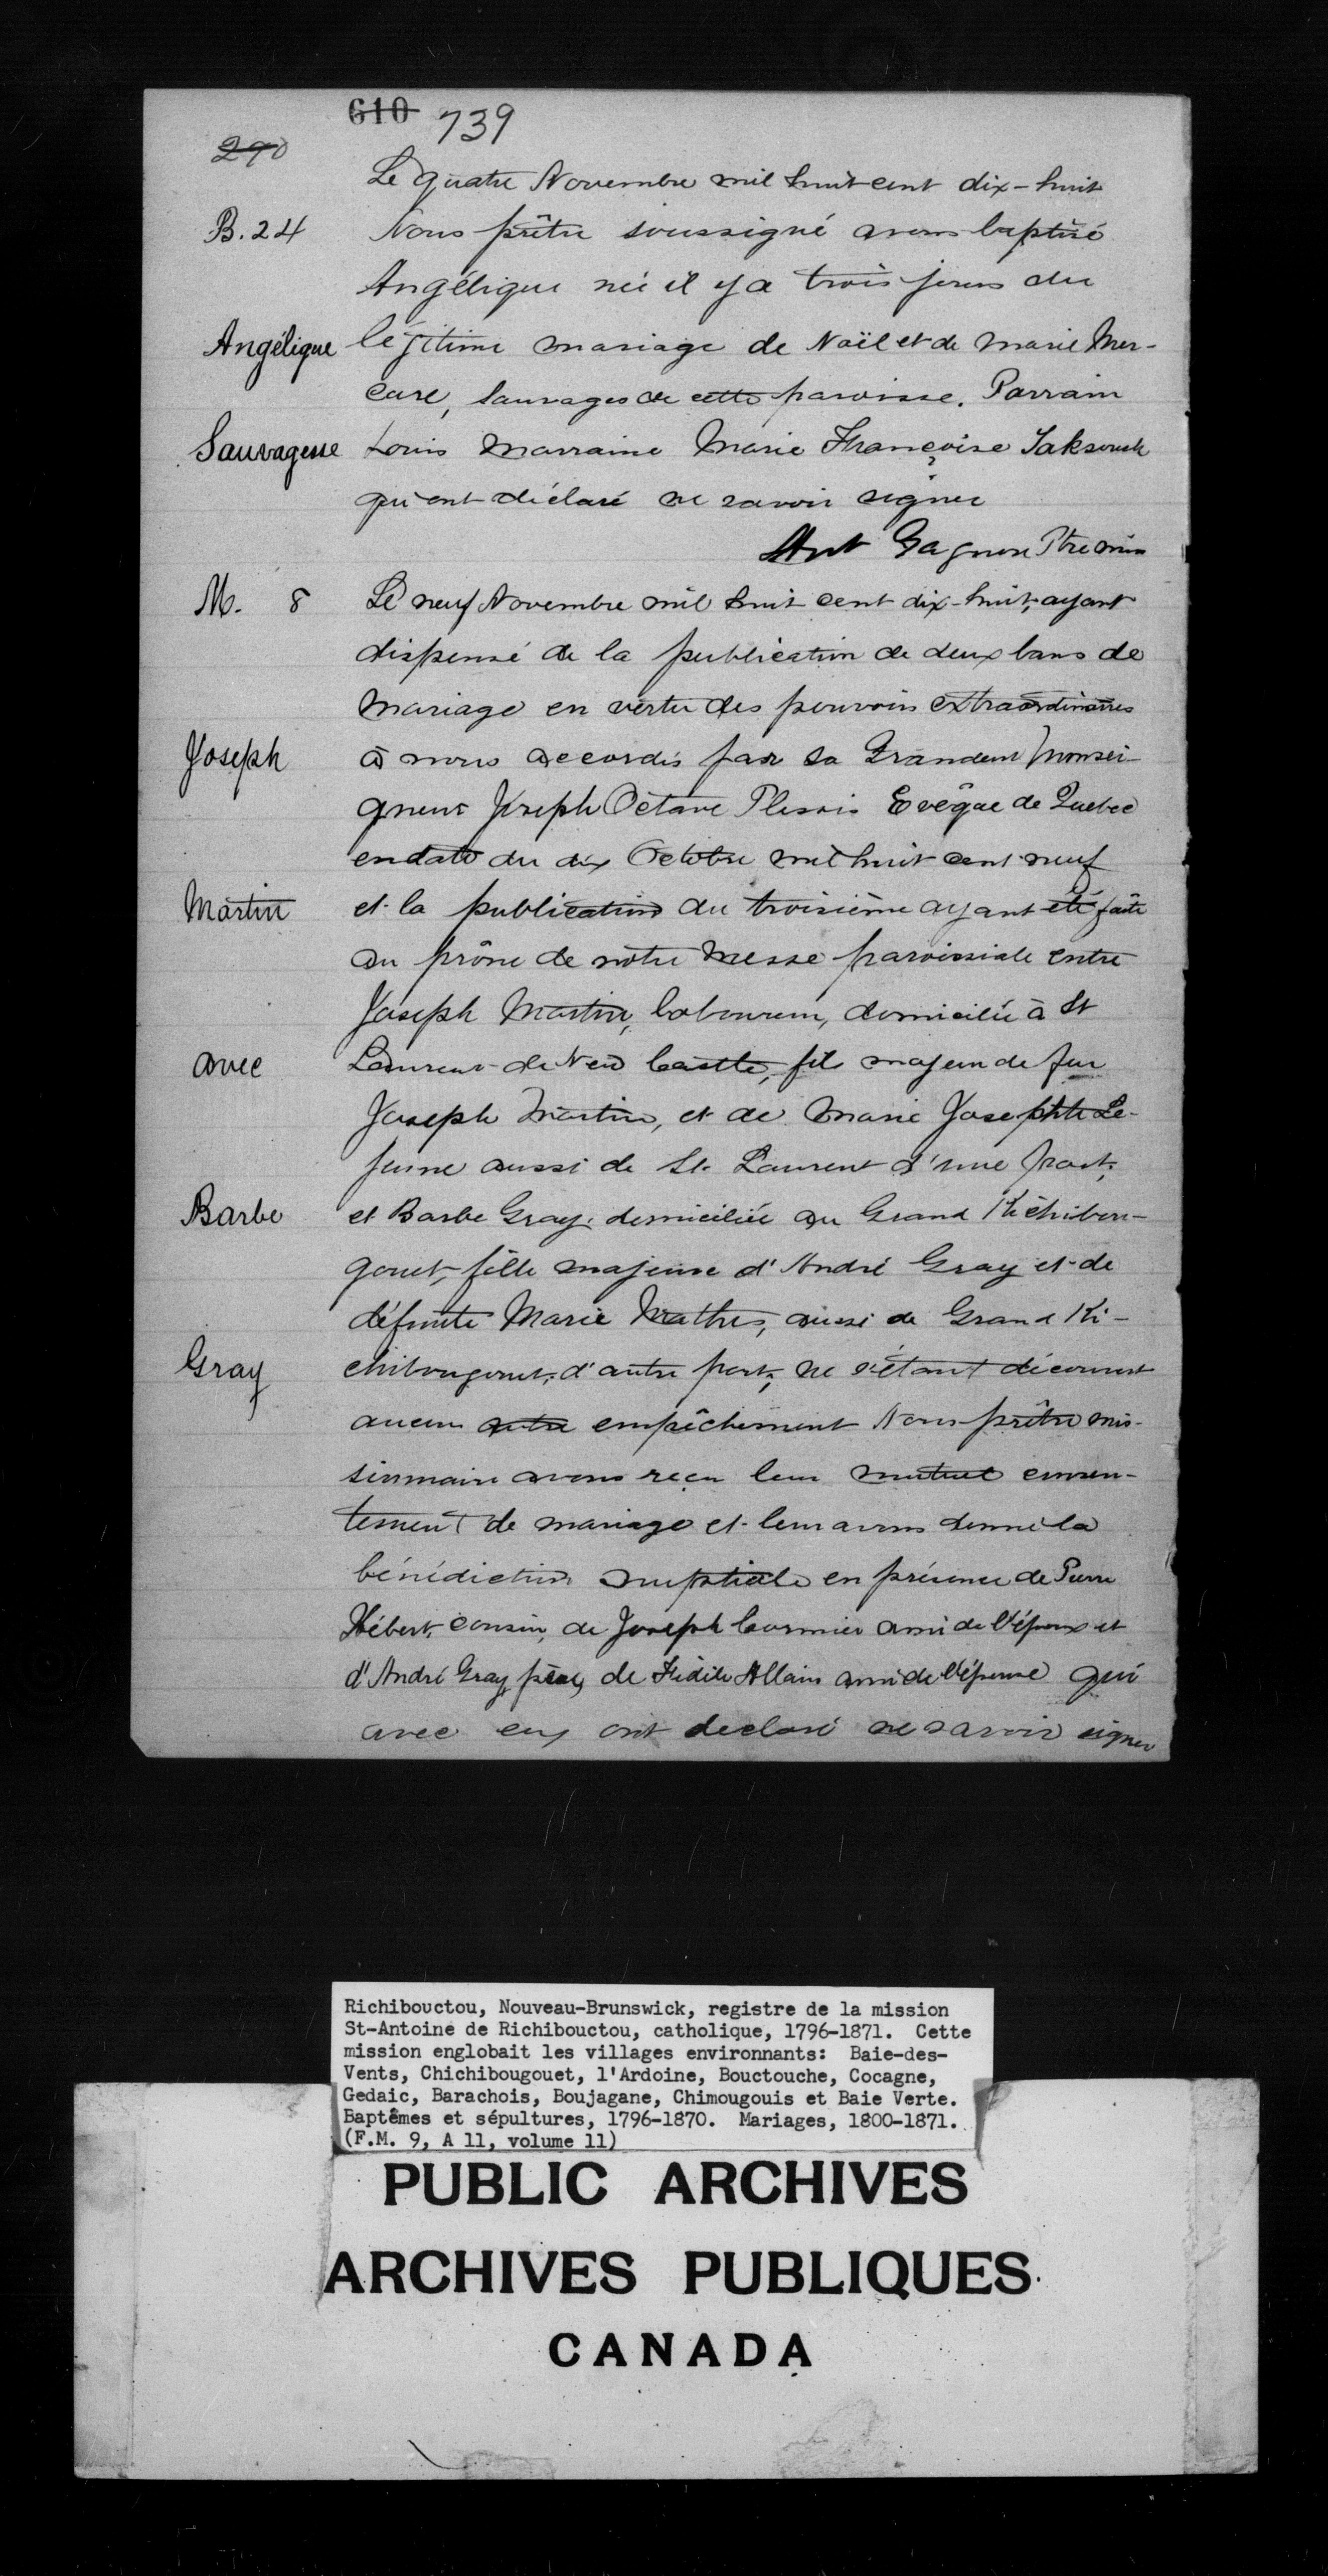 610 739
290
Le quatre Novembre mil huit cent dix-huit
B. 24 Nous prêtre soussigné avons baptisé
Angélique née il y a trois jours du
Angélique légitime mariage de Noël et de Marie Mer-
cure, Sauvages de cette paroisse. Parrain
Sauvagesse Louis Marraine Marie Françoise
qui ont déclaré ne savoir signer
Ant Gagnon Ptre miss
M. 8 Le neuf Novembre mil huit cent dix-huit, ayant
dispensé de la publication de deux bans de
mariage en vertu des pouvoirs extraordinaires
Joseph à nous accordés par sa Grandeur Monsei-
gneur Joseph Octave Plessis Evêque de Quebec
en date du dix Octobre mil huit cent neuf
Martin et la publication du troisième ayant été faite
au prône de notre Messe paroissiale entre
Joseph Martin, laboureur, domicilié à St
avec Laurent de New Castle, fils majeur de feu
Joseph Martin, et de Marie Josephte Le-
jeune aussi de St. Laurent d'une part,
Barbe et Barbe Gray, domiciliée au Grand Kichibou-
gouet, fille majeure d'André Gray et de
défunte Marie Mathes, aussi de Grand Ki-
Gray chibougouet, d'autre part, ne s'étant découvert
aucun autre empêchement Nous prêtre mis-
sionnaire avons reçu leur mutuel consen-
tement de mariage et leur avons donné la
bénédiction nuptiale en présence de Pierre
Hébert, cousin, de Joseph Cormier ami de l'époux et
d'André Gray, père, de Fidèle Allain ami de l'épouse qui
avec eux ont declaré ne savoir signer
Richibouctou, Nouveau-Brunswick, registre de la mission
St-Antoine de Richibouctou, catholique, 1796-1871. Cette
mission englobait les villages environnants: Baie-des-
Vents, Chichibougouet, l'Ardoine, Bouctouche, Cocagne,
Gedaic, Barachois, Boujagane, Chimougouis et Baie Verte.
Baptêmes et sépultures, 1796-1870. Mariages, 1800-1871.
(F.M. 9, A 11, volume 11)
PUBLIC ARCHIVES
ARCHIVES PUBLIQUES
CANADA